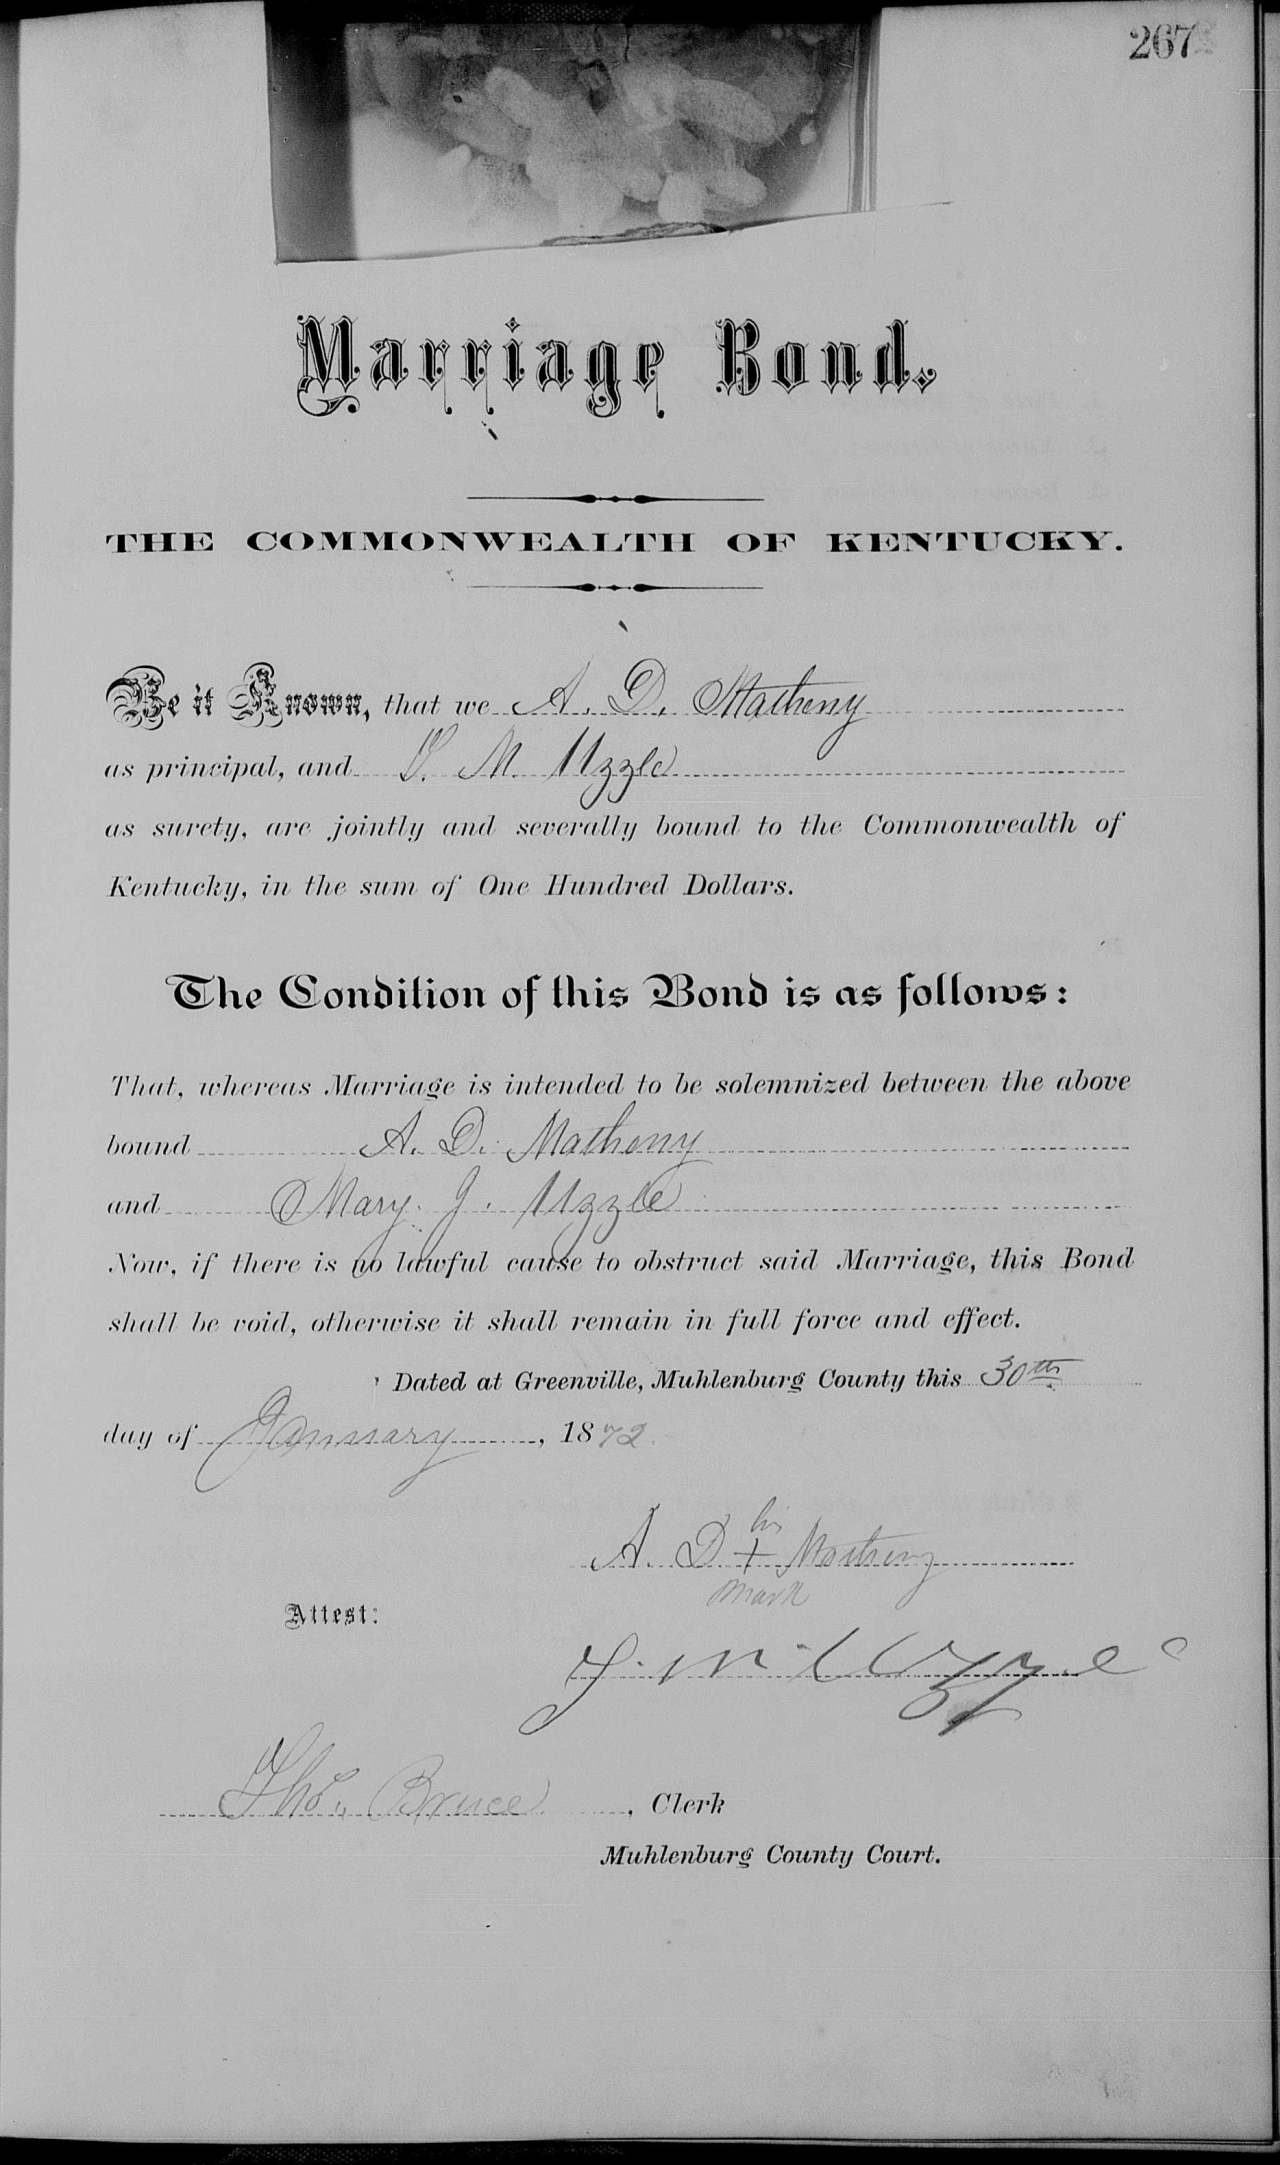 267
Marriage Bond.
THE COMMONWEALTH OF KENTUCKY.
Be it Known, that we A. D. Matheny
as principal, and M. Uzzle
as surety, are jointly and severally bound to the Commonwealth of
Kentucky, in the sum of One Hundred Dollars.
The Condition of this Bond is as follows:
That, whereas Marriage is intended to be solemnized between the above
bound A. D. Matheny
and Mary J. Uzzle
Now, if there is no lawful cause to obstruct said Marriage, this Bond
shall be void, otherwise it shall remain in full force and effect.
Dated at Greenville, Muhlenburg County this 30th
day of January, 1872.
his
A. D + Matheny
mark
Attest:
M. Uzzle
Thos. Bruce, Clerk
Muhlenburg County Court.